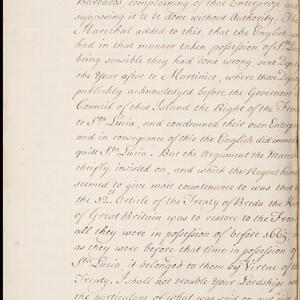 Barbados, complaining of that Enterprize and
supposing it to be done without Authority: The
Marechal added to this, that the English, w
had in that manner taken possession of Sta. Lu
being sensible they had done wrong sent Depu
the Year after to Martinico, where thou Dep
publickly acknowledged before the Governour
Council of that Island the Right of the Fren
to Sta. Lucia, and condemned their own Enterpr
and in consequence of this the English did immed
quitt Sta. Lucia. But the Argument the Marech
cheifly insisted on, and which the Regent him
seemed to give most countenance to was that
the 12th Article of the Treaty of Breda the
of Great Britain was to restore to the Fren
all they were in possession of before 1665,
as they were before that time in possession of
Sta. Lucia, it belonged to them by Virtue of
Treaty. I shall not trouble your Lordships w
the particulars of what was said on